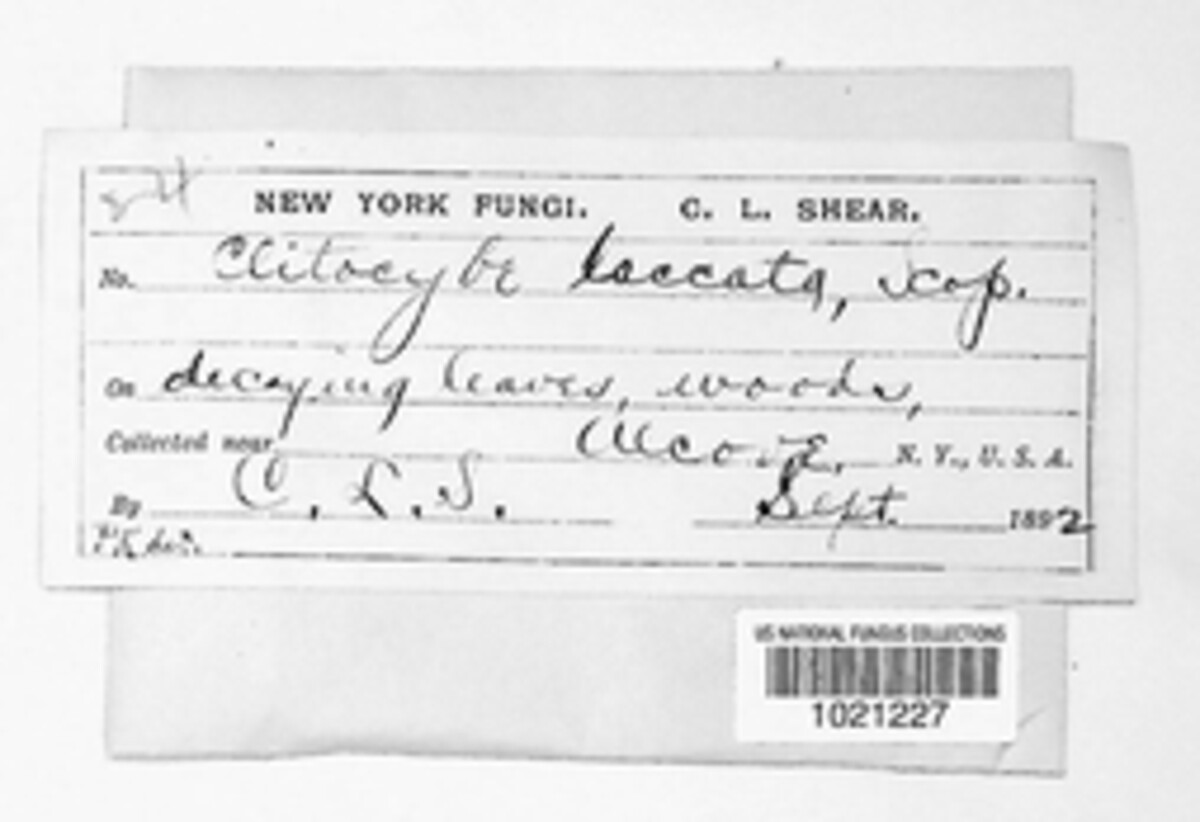 NEW YORK FUNGI. C. L. SHEAR.
No. Clitocybe laccata, Scop.
On decaying leaves, woods,
Collected near Alcove, N. Y., U. S. A.
By C. L. S. Sept. 1892
US NATIONAL FUNGUS COLLECTIONS
1021227